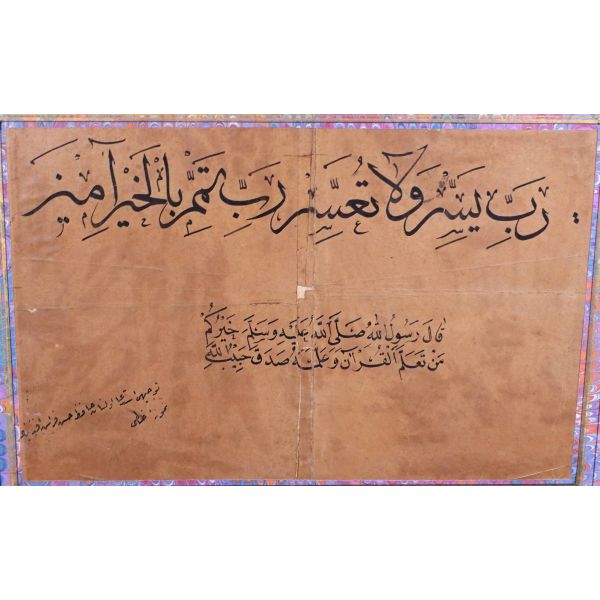 رَبِّ يَسِّرْ وَلَا تُعَسِّرْ رَبِّ تَمِّمْ بِالْخَيْرِ آمِين
قَالَ رَسُولُ اللهِ صَلَّى اللهُ عَلَيْهِ وَسَلَّمَ خَيْرُكُمْ
مَنْ تَعَلَّمَ الْقُرْآنَ وَعَلَّمَهُ صَدَقَ حَبِيبُ اللهِ
حافظ حسن